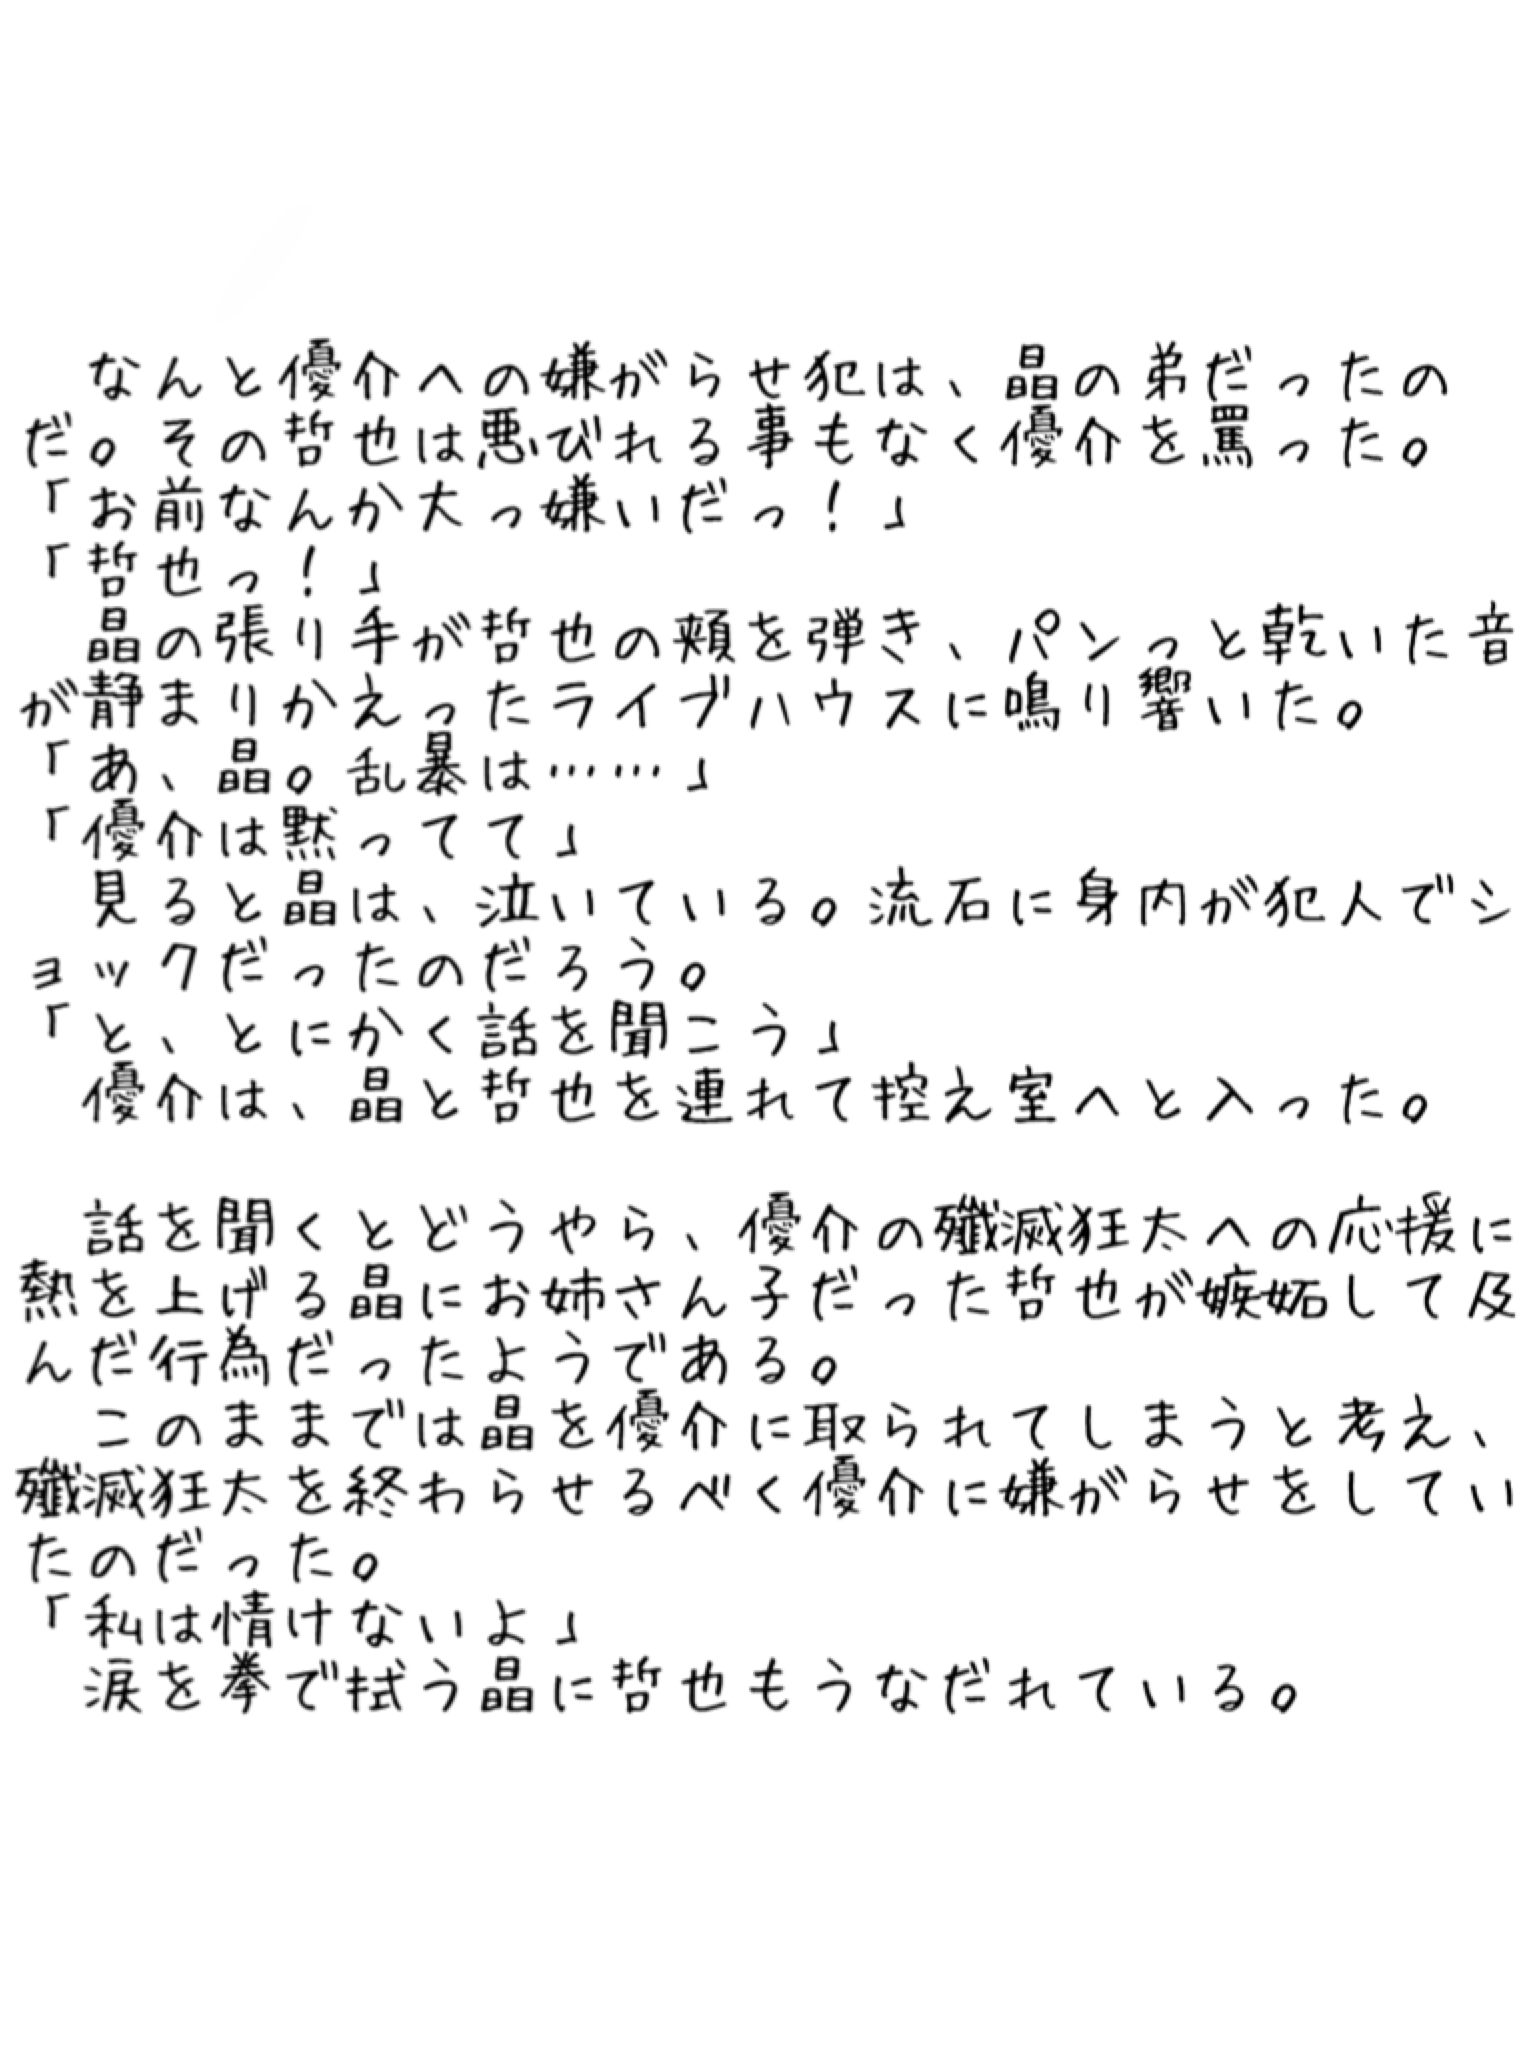 なんと優介への嫌がらせ犯は、晶の弟だったの
だ。その哲也は悪びれる事もなく優介を罵った。
「お前なんか大っ嫌いだっ！」
「哲也っ！」
晶の張り手が哲也の頬を弾き、パンっと乾いた音
が静まりかえったライブハウスに鳴り響いた。
「あ、晶。乱暴は……」
「優介は黙ってて」
見ると晶は、泣いている。流石に身内が犯人でシ
ョックだったのだろう。
「と、とにかく話を聞こう」
優介は、晶と哲也を連れて控え室へと入った。
話を聞くとどうやら、優介の殲滅狂太への応援に
熱を上げる晶にお姉さん子だった哲也が嫉妬して及
んだ行為だったようである。
このままでは晶を優介に取られてしまうと考え、
殲滅狂太を終わらせるべく優介に嫌がらせをしてい
たのだった。
「私は情けないよ」
涙を拳で拭う晶に哲也もうなだれている。